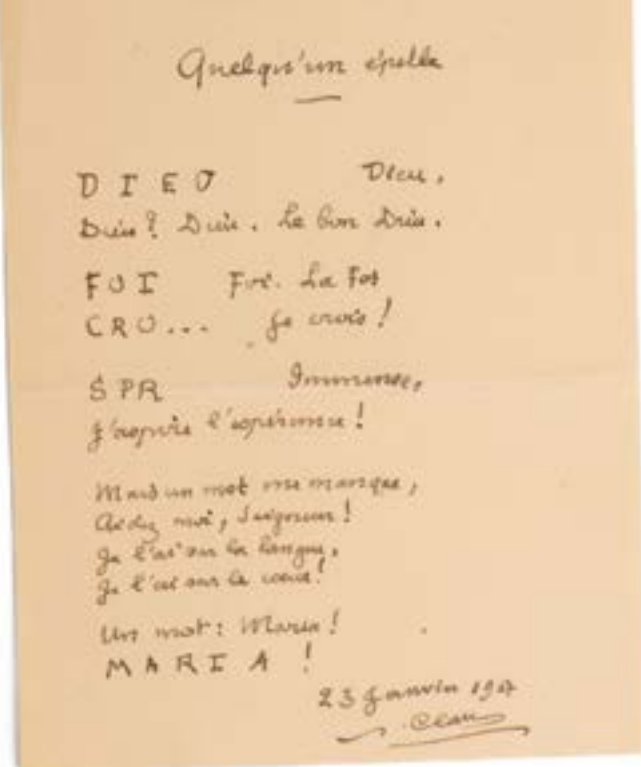 Quelqu'un épelle
D I E U Dieu.
Dieu? Dieu. Le bon Dieu.
F O I Foi. La Foi
C R O ... Je crois!
S P R Immense,
J'aspire l'espérance!
Mais un mot me manque,
Aidez moi, Seigneur!
Je l'ai sur la langue,
Je l'ai sur le cœur!
Un mot: Maria!
M A R I A !
23 Janvier